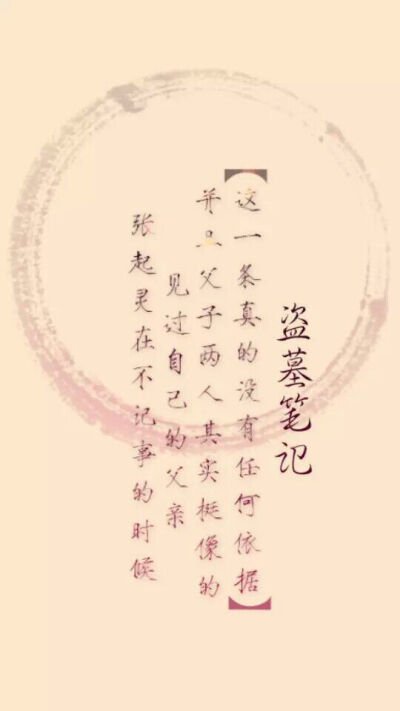 盗墓笔记
张起灵在不记事的时候
见过自己的父亲
并且父子两人其实挺像的
【这一条真的没有任何依据】